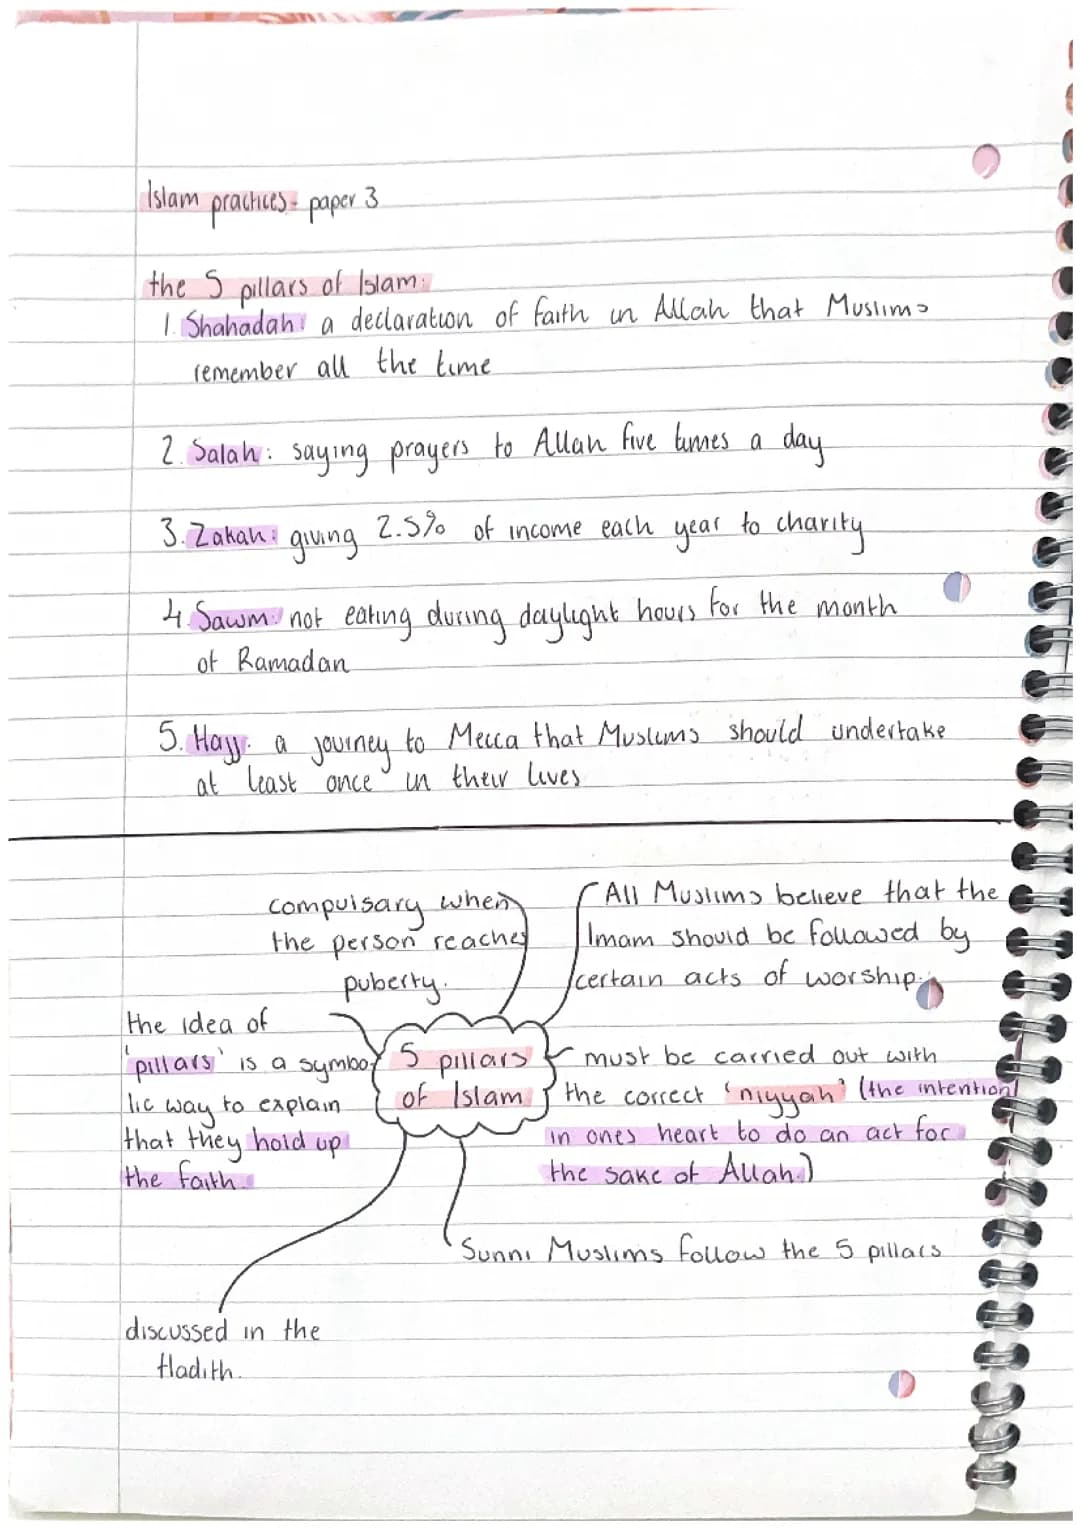 Islam practices - paper 3
the 5 pillars of Islam:
1. Shahadah: a declaration of faith in Allah that Muslims
remember all the time
2. Salah: saying prayers to Allah five times a day
3. Zakah: giving 2.5% of income each year to charity
4. Sawm: not eating during daylight hours for the month
of Ramadan
5. Hajj: a journey to Mecca that Muslims should undertake
at least once in their lives
compulsary when
the person reaches
puberty.
All Muslims believe that the
Imam should be followed by
certain acts of worship.
the idea of
'pillars' is a symbo
lic way to explain
that they hold up
the faith.
5 pillars
of Islam
must be carried out with
the correct 'niyyah' (the intention
in ones heart to do an act for
the sake of Allah.)
Sunni Muslims follow the 5 pillars
discussed in the
Hadith.